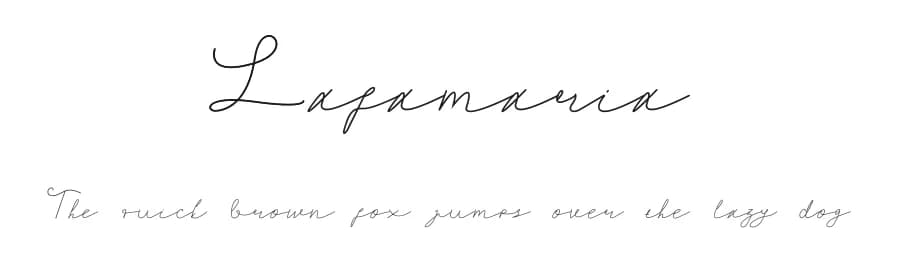 Lafamaria
The quick brown fox jumps over the lazy dog